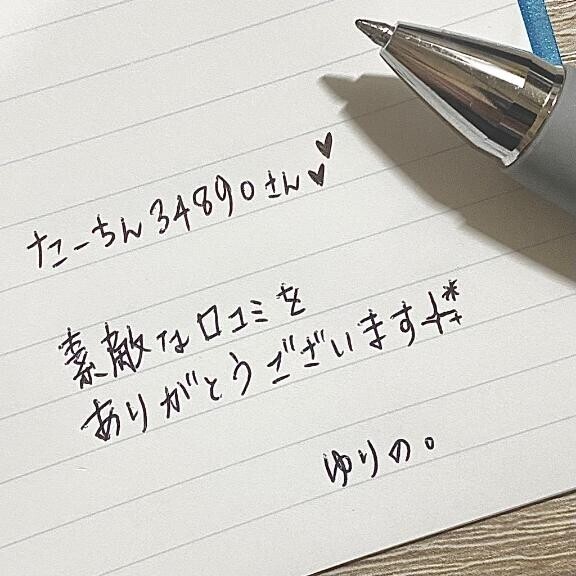 たーちん34890さん♥♥
素敵な口コミを
ありがとうございます
ゆりの。